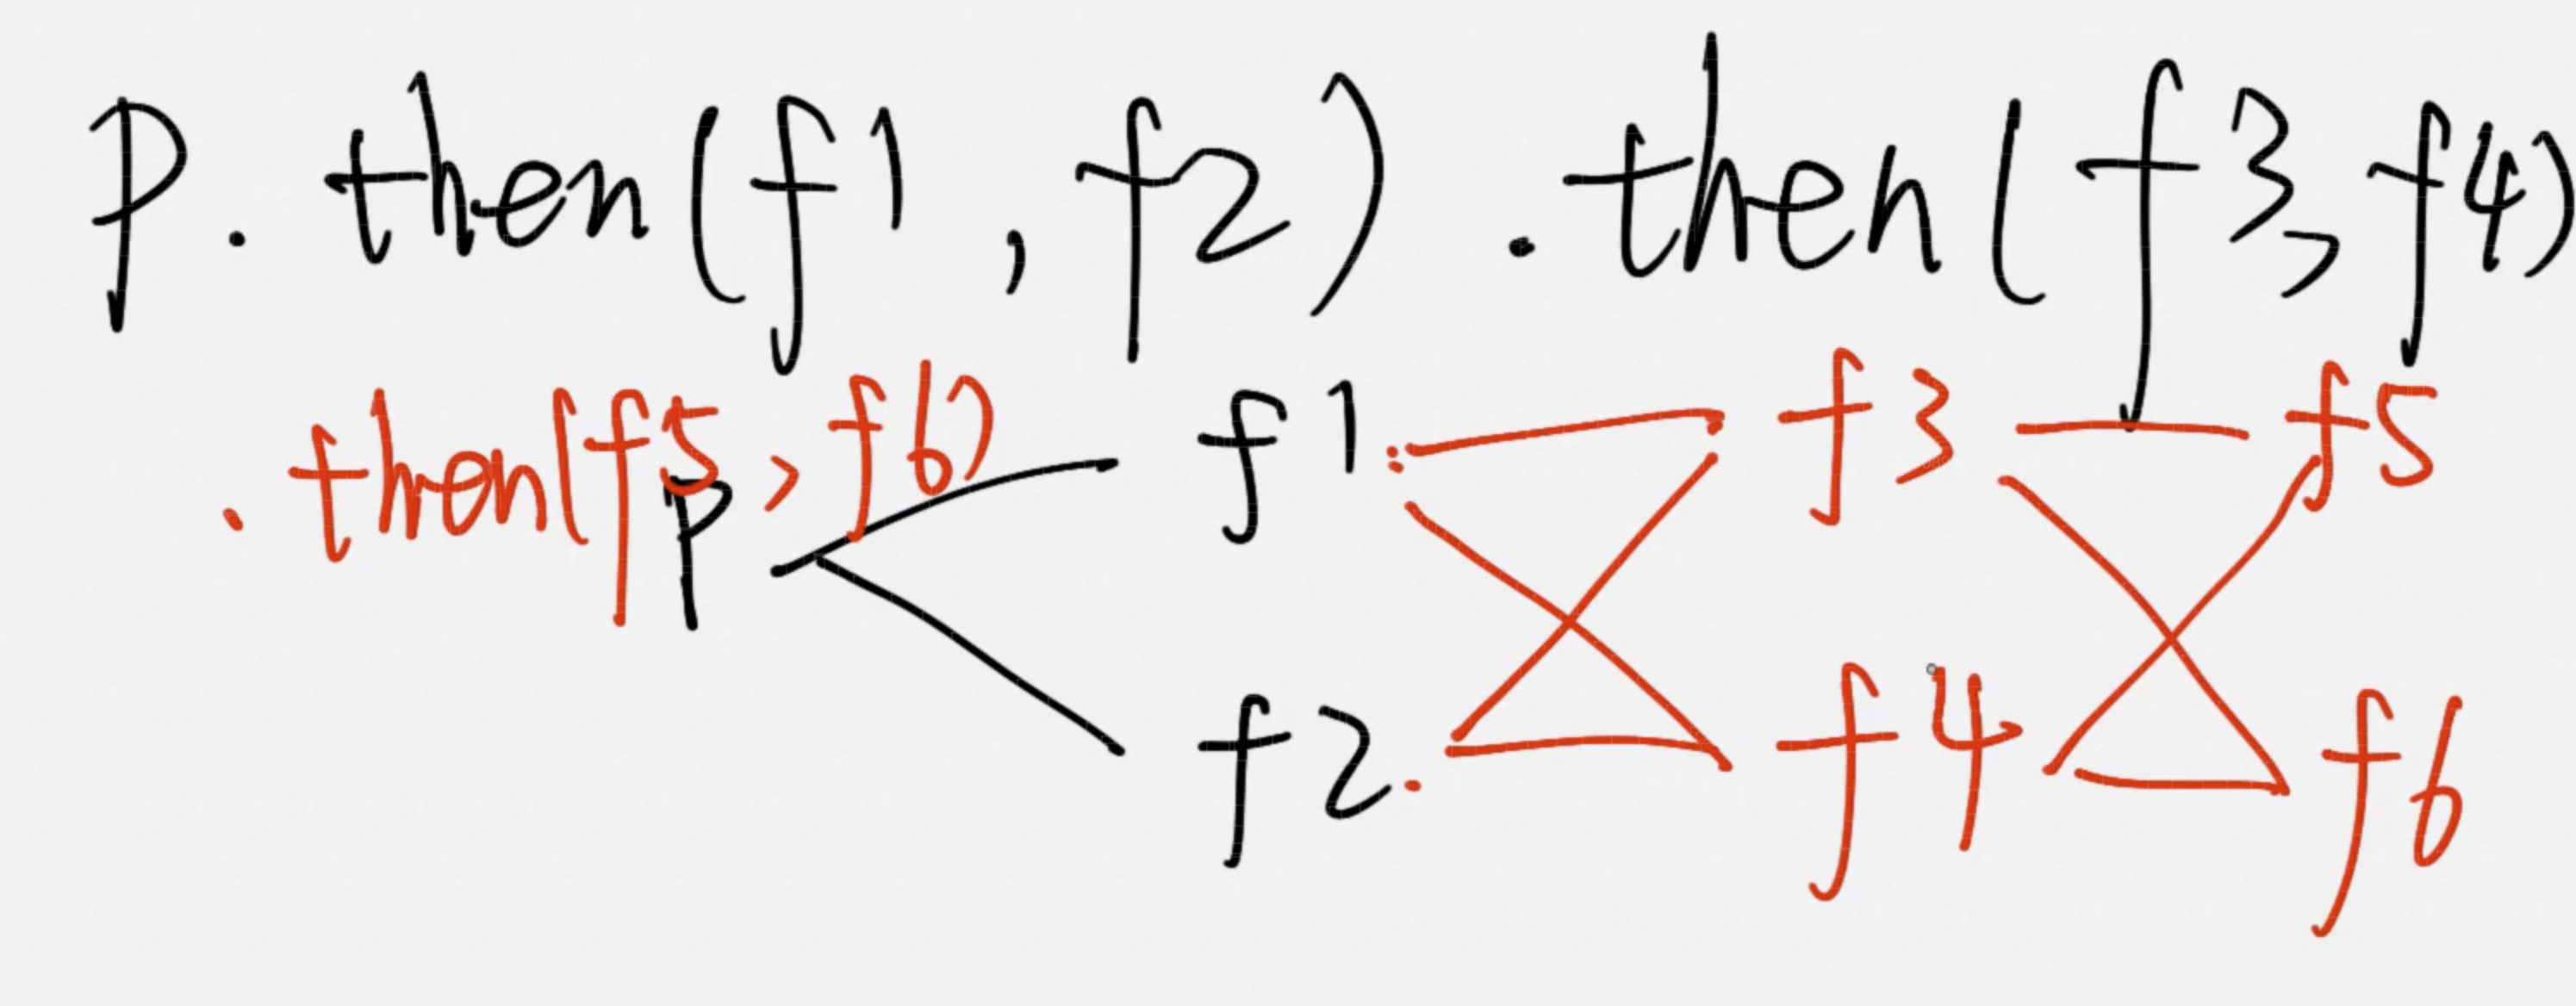 p.then(f1, f2).then(f3, f4)
.then(f5, f6)
p f1 f3 f5
f2. f4 f6